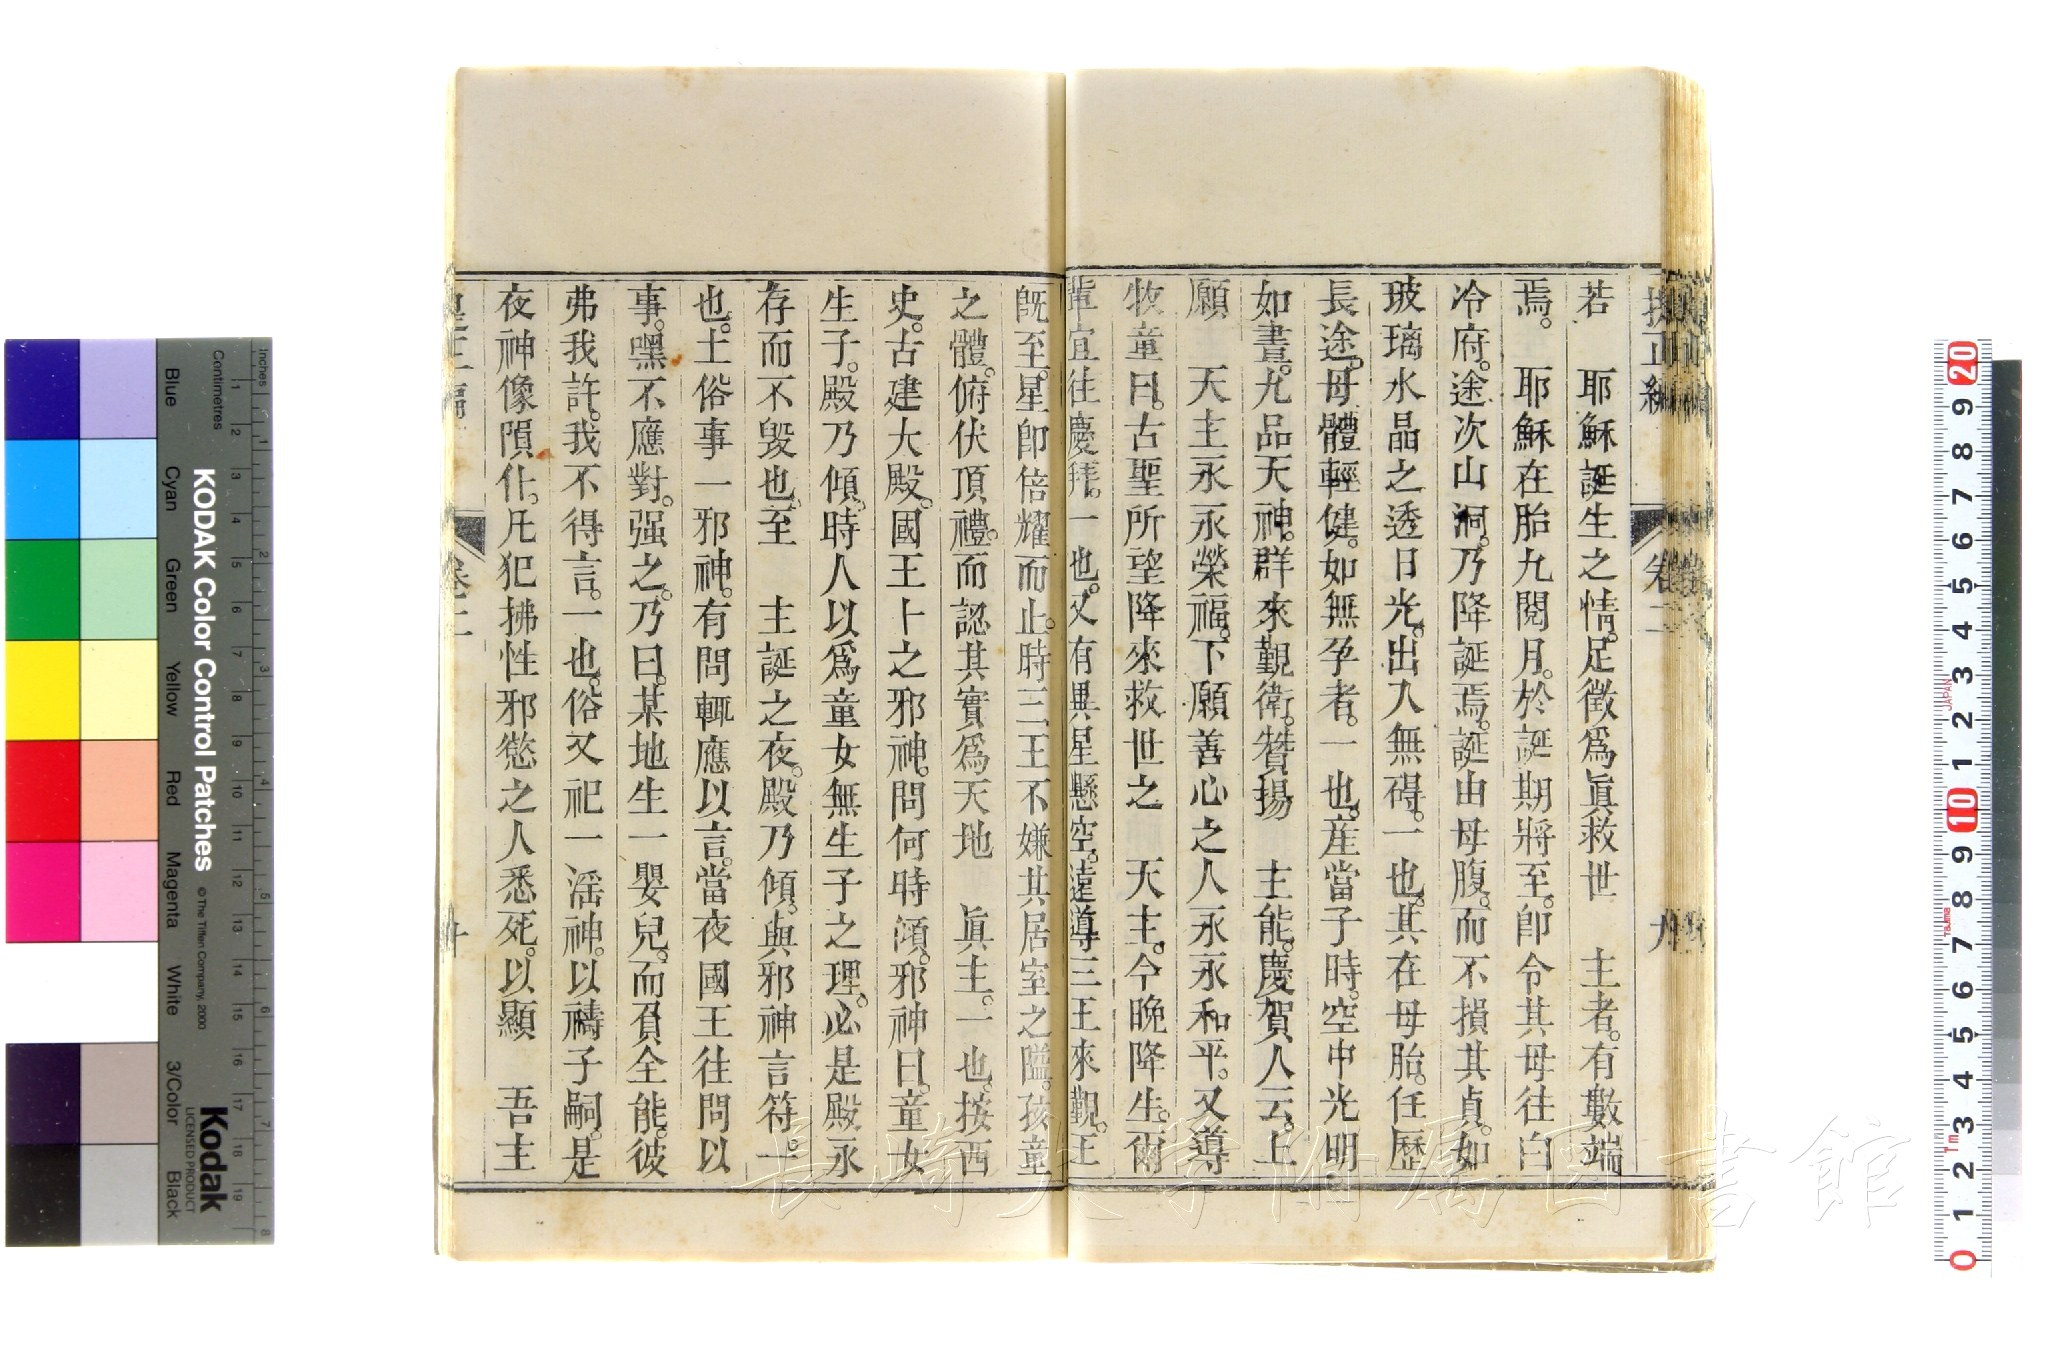 提正編 卷二 九
若 耶穌誕生之情。足徵爲眞救世 主者。有數端
焉。 耶穌在胎九閱月。於誕期將至。卽令其母往白
冷府。途次山洞。乃降誕焉。誕由母腹。而不損其貞。如
玻璃水晶之透日光。出入無碍。一也。其在母胎。任歷
長途。母體輕健。如無孕者。一也。產當子時。空中光明
如晝。九品天神。群來覲衛。贊揚 主能。慶賀人云。上
願 天主永永榮福。下願善心之人永永和平。又導
牧童曰。古聖所望降來救世之 天主。今晚降生。爾
輩宜往慶拜。一也。又有異星懸空。遠導三王來覲。王
旣至。星卽倍耀而止。時三王不嫌其居室之隘。孩童
之體。俯伏頂禮。而認其實爲天地 眞主。一也。按西
史。古建大殿。國王卜之邪神。問何時傾。邪神曰。童女
生子。殿乃傾。時人以爲童女無生子之理。必是殿永
存而不毀也。至 主誕之夜。殿乃傾。與邪神言符。一
也。土俗事一邪神。有問輒應以言。當夜國王往問以
事。嘿不應對。强之。乃曰。某地生一嬰兒。而負全能。彼
弗我許。我不得言。一也。俗又祀一淫神。以禱子嗣。是
夜神像隕仆。凡犯拂性邪慾之人悉死。以顯 吾主
提正編 卷二 十
KODAK Color Control Patches
© The Tiffen Company, 2000
Kodak
LICENSED PRODUCT
Inches
Centimetres
Blue
Cyan
Green
Yellow
Red
Magenta
White
3/Color
Black
JAPAN
TAJIMA
1m
長崎大学附属図書館